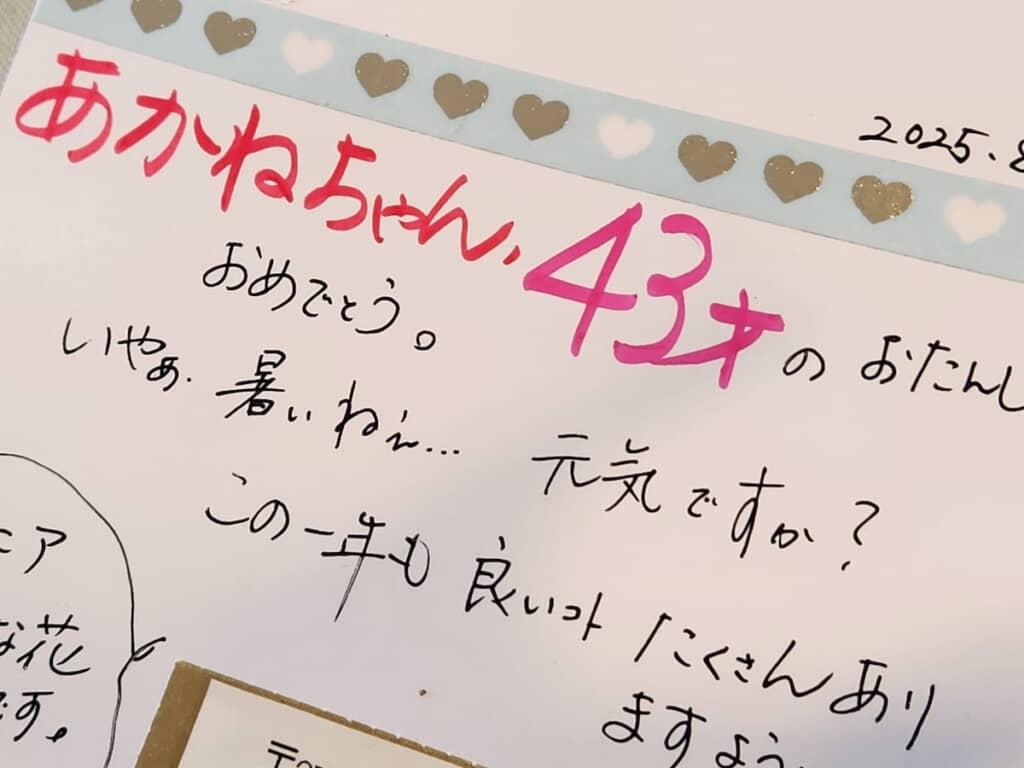 2025.8
あかねちゃん、43才のおたんし
おめでとう。
いやぁ。暑いねぇ… 元気ですか？
この一年も良いコトたくさんあり
ますよう
ニア
な花
です。
〒